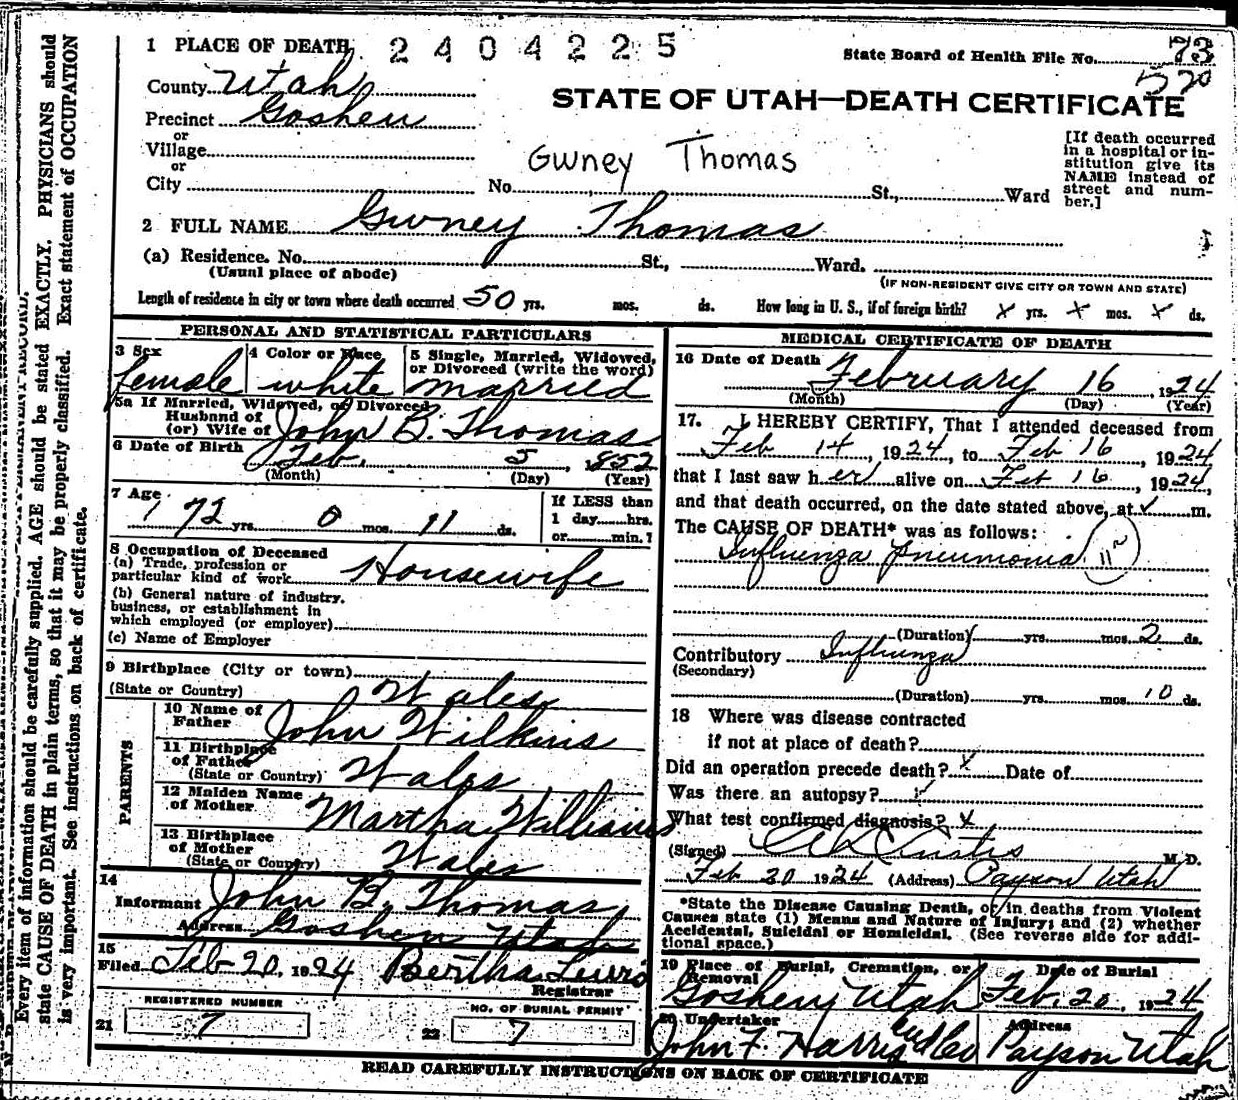 1 PLACE OF DEATH 2404225 State Board of Health File No. 73
County Utah 520
Precinct Goshen STATE OF UTAH—DEATH CERTIFICATE
or
Village
or
City No. St., Ward
Gwney Thomas
[If death occurred
in a hospital or in-
stitution give its
NAME instead of
street and num-
ber.]
2 FULL NAME Gwney Thomas
(a) Residence. No. St., Ward.
(Usual place of abode) (IF NON-RESIDENT GIVE CITY OR TOWN AND STATE)
Length of residence in city or town where death occurred 50 yrs. mos. ds. How long in U. S., if of foreign birth? x yrs. x mos. x ds.
PERSONAL AND STATISTICAL PARTICULARS
3 Sex female
4 Color or Race white
5 Single, Married, Widowed,
or Divorced (write the word)
married
5a If Married, Widowed, or Divorced
Husband of
(or) Wife of John B. Thomas
6 Date of Birth Feb. 5, 1852
(Month) (Day) (Year)
7 Age 72 yrs. 0 mos. 11 ds.
If LESS than
1 day hrs.
or min.?
8 Occupation of Deceased
(a) Trade, profession or
particular kind of work Housewife
(b) General nature of industry,
business, or establishment in
which employed (or employer)
(c) Name of Employer
9 Birthplace (City or town)
(State or Country) Wales
PARENTS
10 Name of
Father John Wilkins
11 Birthplace
of Father
(State or Country) Wales
12 Maiden Name
of Mother Martha Williams
13 Birthplace
of Mother
(State or Country) Wales
14
Informant John B. Thomas
Address Goshen Utah
15
Filed Feb 20, 1924 Bertha Lewis
Registrar
REGISTERED NUMBER
21 7
NO. OF BURIAL PERMIT
22 7
MEDICAL CERTIFICATE OF DEATH
16 Date of Death February 16, 1924
(Month) (Day) (Year)
17. I HEREBY CERTIFY, That I attended deceased from
Feb 14, 1924, to Feb 16, 1924
that I last saw her alive on Feb 16, 1924,
and that death occurred, on the date stated above, at m.
The CAUSE OF DEATH* was as follows:
Influenza Pneumonia
(Duration) yrs. mos. 2 ds.
Contributory Influenza
(Secondary)
(Duration) yrs. mos. 10 ds.
18 Where was disease contracted
if not at place of death?
Did an operation precede death? x Date of
Was there an autopsy?
What test confirmed diagnosis? x
(Signed) M. D.
Feb 20 1924 (Address) Payson Utah
*State the Disease Causing Death, or in deaths from Violent
Causes state (1) Means and Nature of Injury; and (2) whether
Accidental, Suicidal or Homicidal. (See reverse side for addi-
tional space.)
19 Place of Burial, Cremation, or
Removal
Goshen, Utah
Date of Burial
Feb. 20, 1924
20 Undertaker
John F. Harris
Address
Payson Utah
READ CAREFULLY INSTRUCTIONS ON BACK OF CERTIFICATE
Every item of information should be carefully supplied. AGE should be stated EXACTLY. PHYSICIANS should
state CAUSE OF DEATH in plain terms, so that it may be properly classified. Exact statement of OCCUPATION
is very important. See instructions on back of certificate.